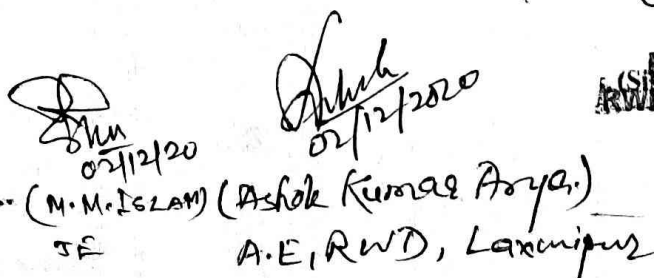 02/12/20
02/12/2020
(M.M. ISLAM) (Ashok Kumar Arya.)
JE A.E, RWD, Laxmipur